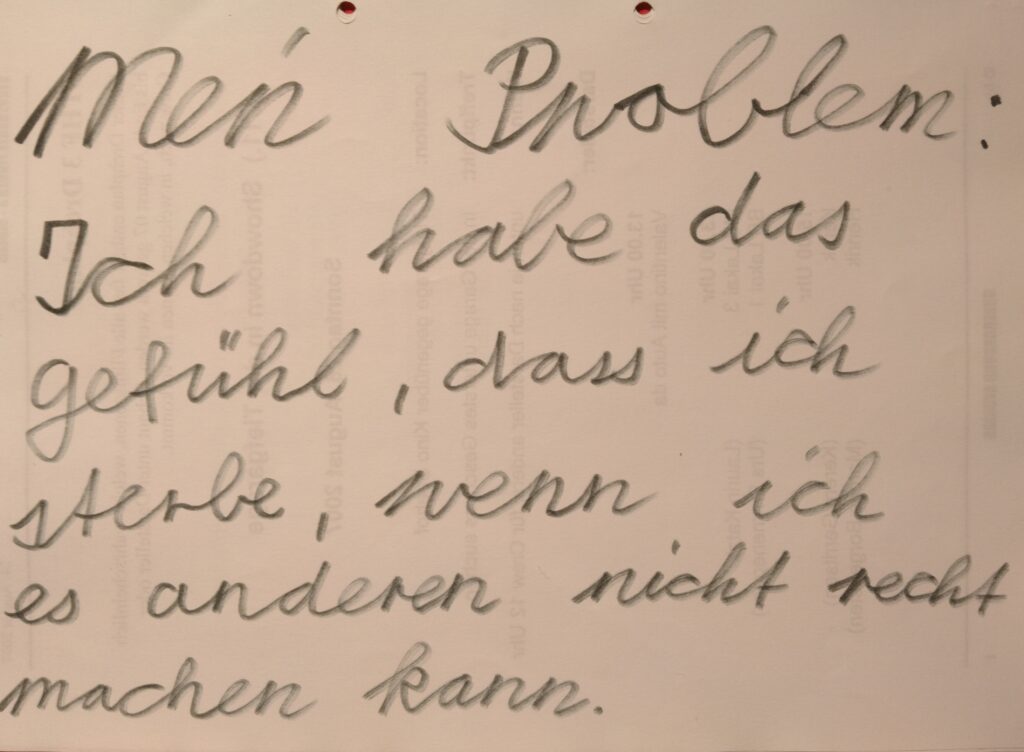 Mein Problem:
Ich habe das
gefühl, dass ich
sterbe, wenn ich
es anderen nicht recht
machen kann.